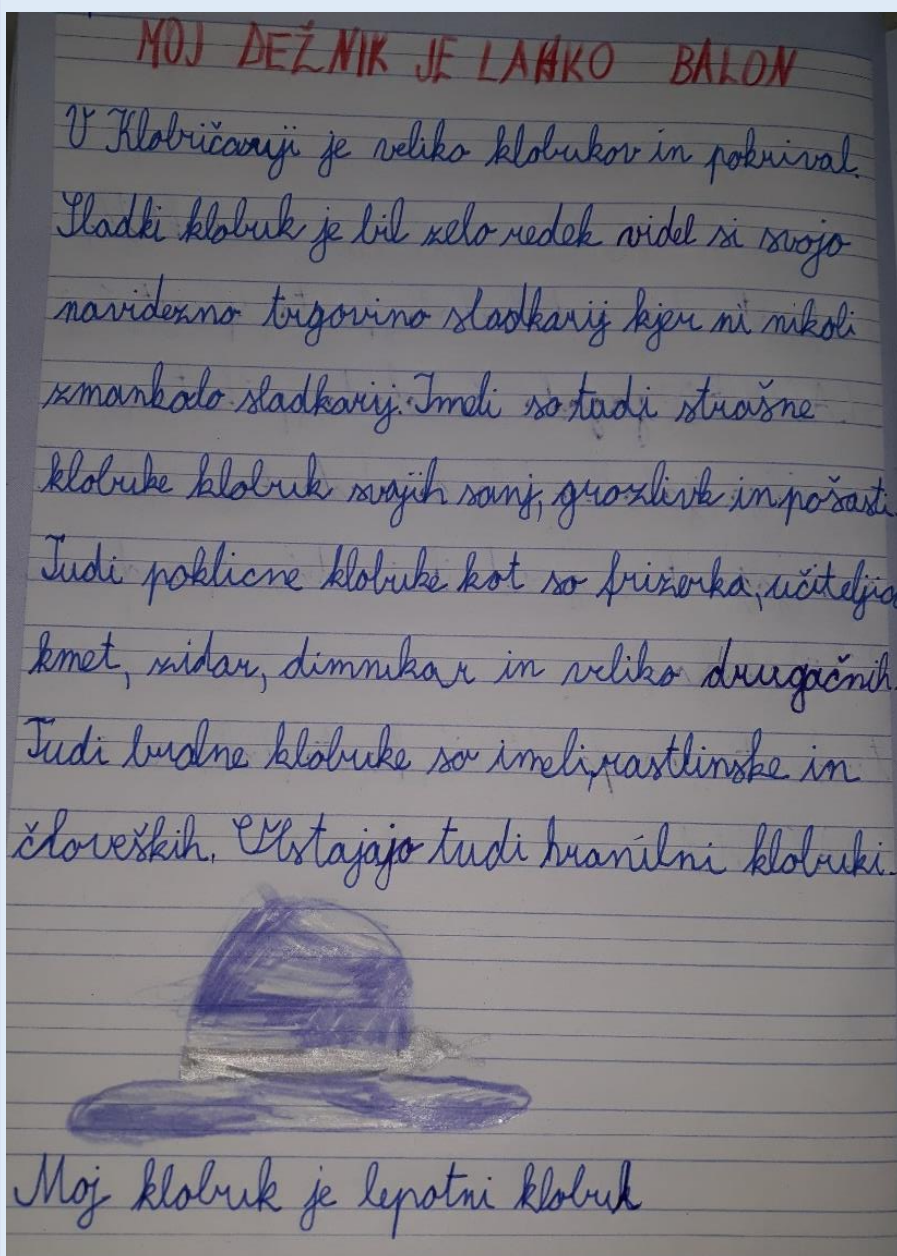 MOJ DEŽNIK JE LAHKO BALON
V Klobričariji je veliko klobukov in pokrival.
Sladki klobuk je bil zelo redek videl si svojo
navidezno trgovino sladkarij kjer ni nikoli
zmankalo sladkarij. Imeli so tudi strašne
klobuke klobuk svojih sanj, grozlivk in pošasti.
Tudi poklicne klobuke kot so frizerka, učiteljica
kmet, zidar, dimnikar in veliko drugačnih.
Tudi budne klobuke so imeli, rastlinske in
človeških. Obstajajo tudi hranilni klobuki.
Moj klobuk je lepotni klobuk